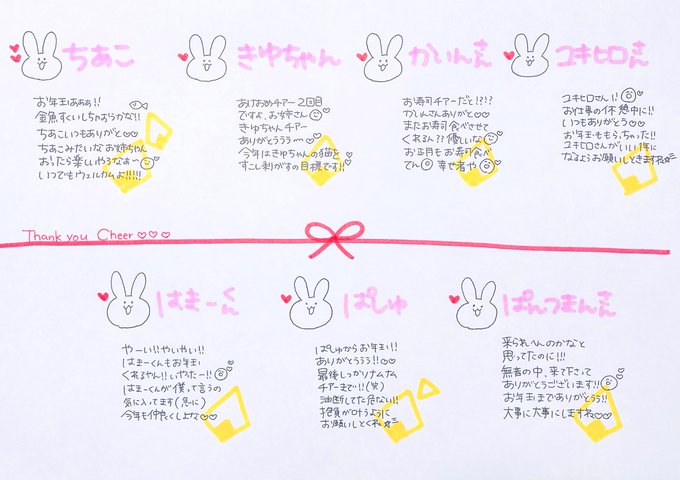 ちあこ
お年玉ぁぁぁ!!
金魚すくいしちゃおうかな!!
ちあこいつもありがと♡♡
ちあこみたいなお姉ちゃん
おったら楽しいやろなぁ〜
いつでもウェルカムよ!!!!!
きゆちゃん
あけおめチアー2回目
ですよ、お姉さん
きゆちゃんチアー
ありがとうララ〜♡
今年はきゆちゃんの猫を
すこし剥がすの目標です!!
かいんさん
お寿司チアーだと!?!?
かいんさんありがと♡♡
またお寿司食べさせて
くれるん??優しいな
お正月もお寿司食べ
てん 幸せ者や
ユキヒロさん
ユキヒロさん!!
お仕事の休憩中に!!
いつもありがとう♡♡
お年玉ももらっちゃった!!
ユキヒロさんがいい1年に
なるようお願いしときますね☆
Thank you Cheer♡♡♡
はまーくん
やーい!!やいやい!!
はまーくんもお年玉
くれるやん!!いやったー!!
はまーくんが僕って言うの
気に入ってます(急に)
今年も仲良くしよな♡♡
ぱしゅ
ぱしゅからお年玉!!
ありがとううう!!♡♡
最後しっかりナムナム
チアーまで!!(笑)
油断してた危ない!!
抱負が叶うように
お願いしとくね☆
ぱんつまんさん
来られへんのかなと
思ってたのに!!!
無音の中、来て下さって
ありがとうございます!!
お年玉までありがとうう!!
大事に大事にしますね♡♡